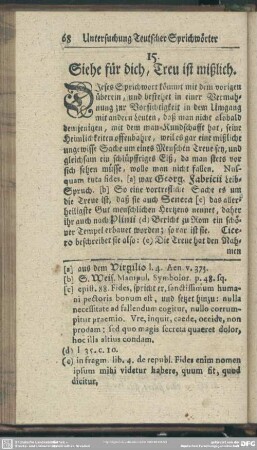 68 Untersuchung Teutscher Sprichwörter
15.
Siehe für dich, Treu ist mißlich.
Dieses Sprichwort kömmt mit dem vorigen
überein, und bestehet in einer Vermah-
nung zur Vorsichtigkeit in dem Umgang
mit andern Leuten, daß man nicht alsobald
demjenigen, mit dem man Kundschafft hat, seine
Heimlichkeiten offenbahre, weil es gar eine mißliche
ungewisse Sache um eines Menschen Treue sey, und
gleichsam ein schlüpffriges Eiß, da man stets vor
sich sehen müsse, wolle man nicht fallen. Nus-
quam tuta fides. (a) war Georg. Fabricii Leib-
Spruch. (b) So eine vortrefliche Sache es um
die Treue ist, daß sie auch Seneca (c) das aller-
heiligste Gut menschlichen Hertzens nennet, daher
ihr auch nach Plinii (d) Bericht zu Rom ein schö-
ner Tempel erbauet worden; so rar ist sie. Cice-
ro beschreibet sie also: (e) Die Treue hat den Nah-
men
(a) aus dem Virgilio l. 4. Aen. v. 373.
(b) S. Weis. Manipul. Symbolor. p. 48. sq.
(c) epist. 88. Fides, spricht er, sanctissimum huma-
ni pectoris bonum est, und setzet hinzu: nulla
necessitate ad fallendum cogitur, nullo corrum-
pitur praemio. Vre, inquit, caede, occide, non
prodam; sed quo magis secreta quaeret dolor,
hoc illa altius condam,
(d) l. 35. c. 10.
(e) in fragm. lib. 4. de republ. Fides enim nomen
ipsum mihi videtur habere, quum fit, quod
dicitur,